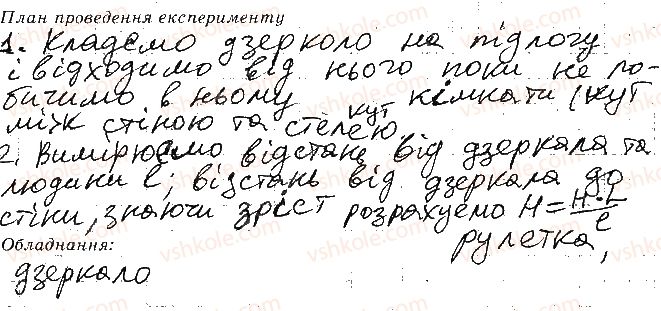 План проведення експерименту
1. Кладемо дзеркало на підлогу
і відходимо від нього поки не по-
бачимо в ньому кут кімнати (кут
між стіною та стелею.
2. Вимірюємо відстань від дзеркала та
людини l; відстань від дзеркала до
стіни, знаючи зріст розрахуємо H = H·L/l
Обладнання: рулетка,
дзеркало